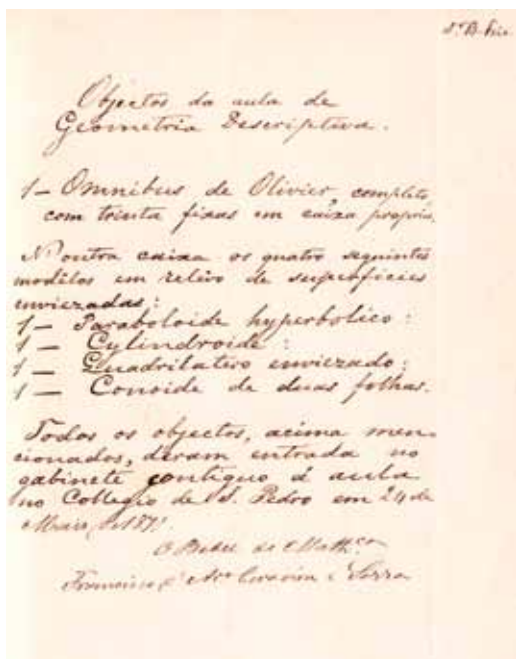 Objectos da aula de
Geometria Descriptiva.
1 — Omnibus de Olivier, completo,
com trinta fixas em caixa propria.
N'outra caixa os quatro seguintes
modêlos em relêvo de superficies
enviezadas:
1 — Paraboloide hyperbolico:
1 — Cylindroide:
1 — Quadrilatero enviezado:
1 — Conoide de duas folhas.
Todos os objectos, acima men-
cionados, deram entrada no
gabinete contiguo á aula
no Collegio de S. Pedro em 24 de
O Bedel de Math.ca
Francisco Serra